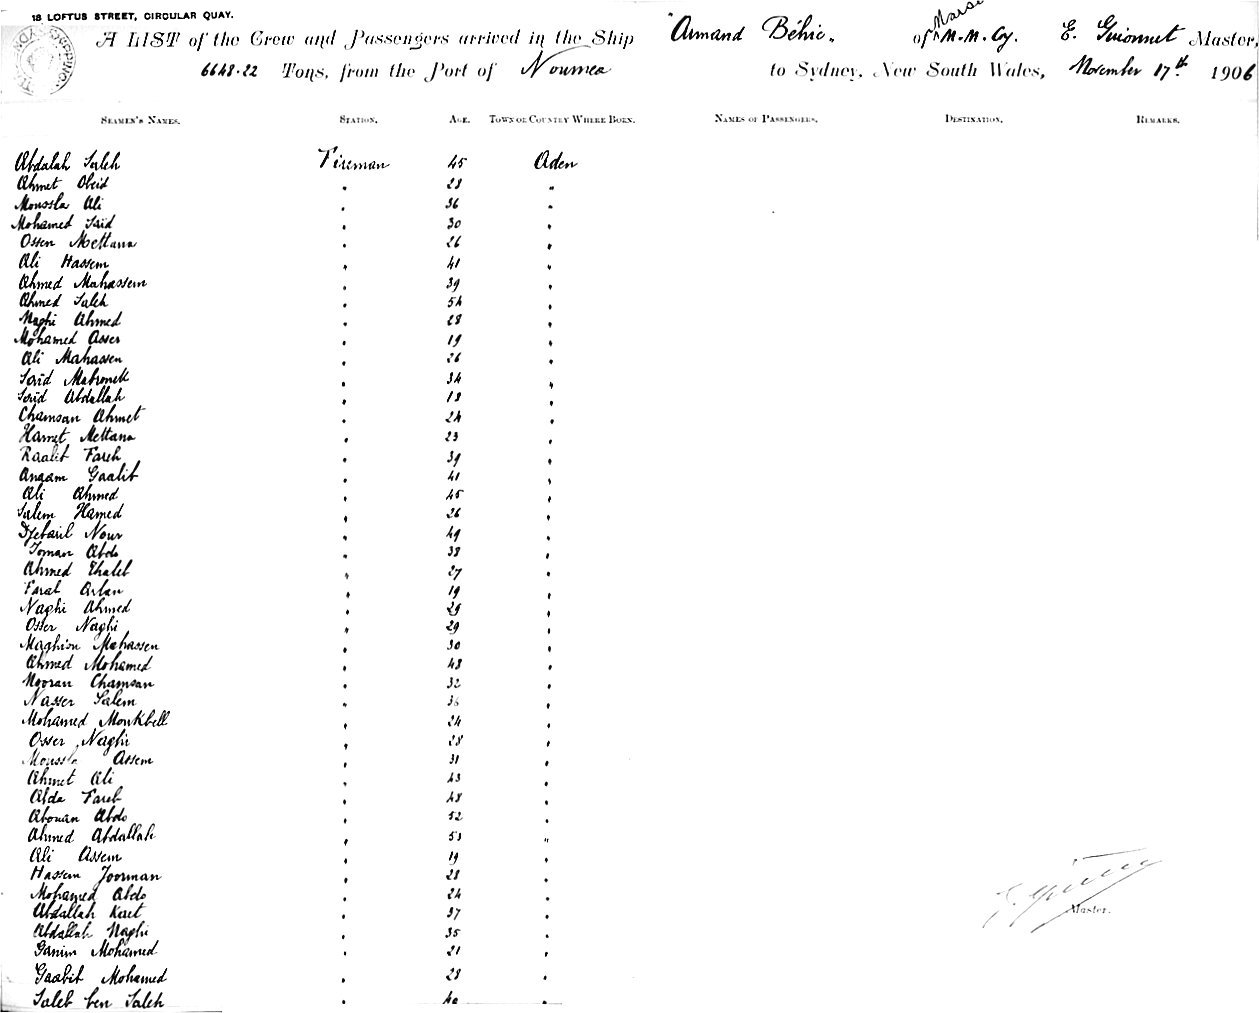 18 LOFTUS STREET, CIRCULAR QUAY.
A LIST of the Crew and Passengers arrived in the Ship "Armand Béhic. of M.M. Cy. E. Guionnet Master,
6648.22 Tons, from the Port of Noumea to Sydney, New South Wales, November 17th 1906
SEAMEN'S NAMES. STATION. AGE. TOWN OR COUNTRY WHERE BORN. NAMES OF PASSENGERS. DESTINATION. REMARKS.
Abdalah Saleh Fireman 45 Aden
Ahmet Obeid " 28 "
Moussla Ali " 36 "
Mohamed Saïd " 30 "
Ossen Mettana " 26 "
Ali Hassem " 41 "
Ahmed Mahassem " 39 "
Ahmed Saleh " 54 "
Naghi Ahmed " 28 "
Mohamed Asser " 19 "
Ali Mahassen " 26 "
Saïd Mabrouck " 34 "
Saïd Abdallah " 18 "
Chamsan Ahmet " 24 "
Hamet Mettana " 23 "
Raalit Fareh " 39 "
Angam Gaalib " 41 "
Ali Ahmed " 45 "
Salem Hamed " 26 "
Djebaril Nour " 49 "
Joman Abdo " 38 "
Ahmed Ehaleb " 27 "
Farat Arlan " 19 "
Naghi Ahmed " 29 "
Osser Naghi " 29 "
Maghisn Mahassen " 30 "
Ahmed Mohamed " 48 "
Nooran Chamsan " 32 "
Nasser Salem " 36 "
Mohamed Monkbell " 24 "
Osser Naghi " 28 "
Moussla Assem " 31 "
Ahmet Ali " 43 "
Abda Fareh " 48 "
Abouan Abdo " 52 "
Ahmed Abdallah " 53 "
Ali Assem " 19 "
Hassem Joorman " 28 "
Mohamed Abdo " 24 "
Abdallah Kaet " 37 "
Abdallah Naghi " 35 "
Ganim Mohamed " 21 "
Gaabit Mohamed " 28 "
Saleb ben Saleh " 40 "
Master.